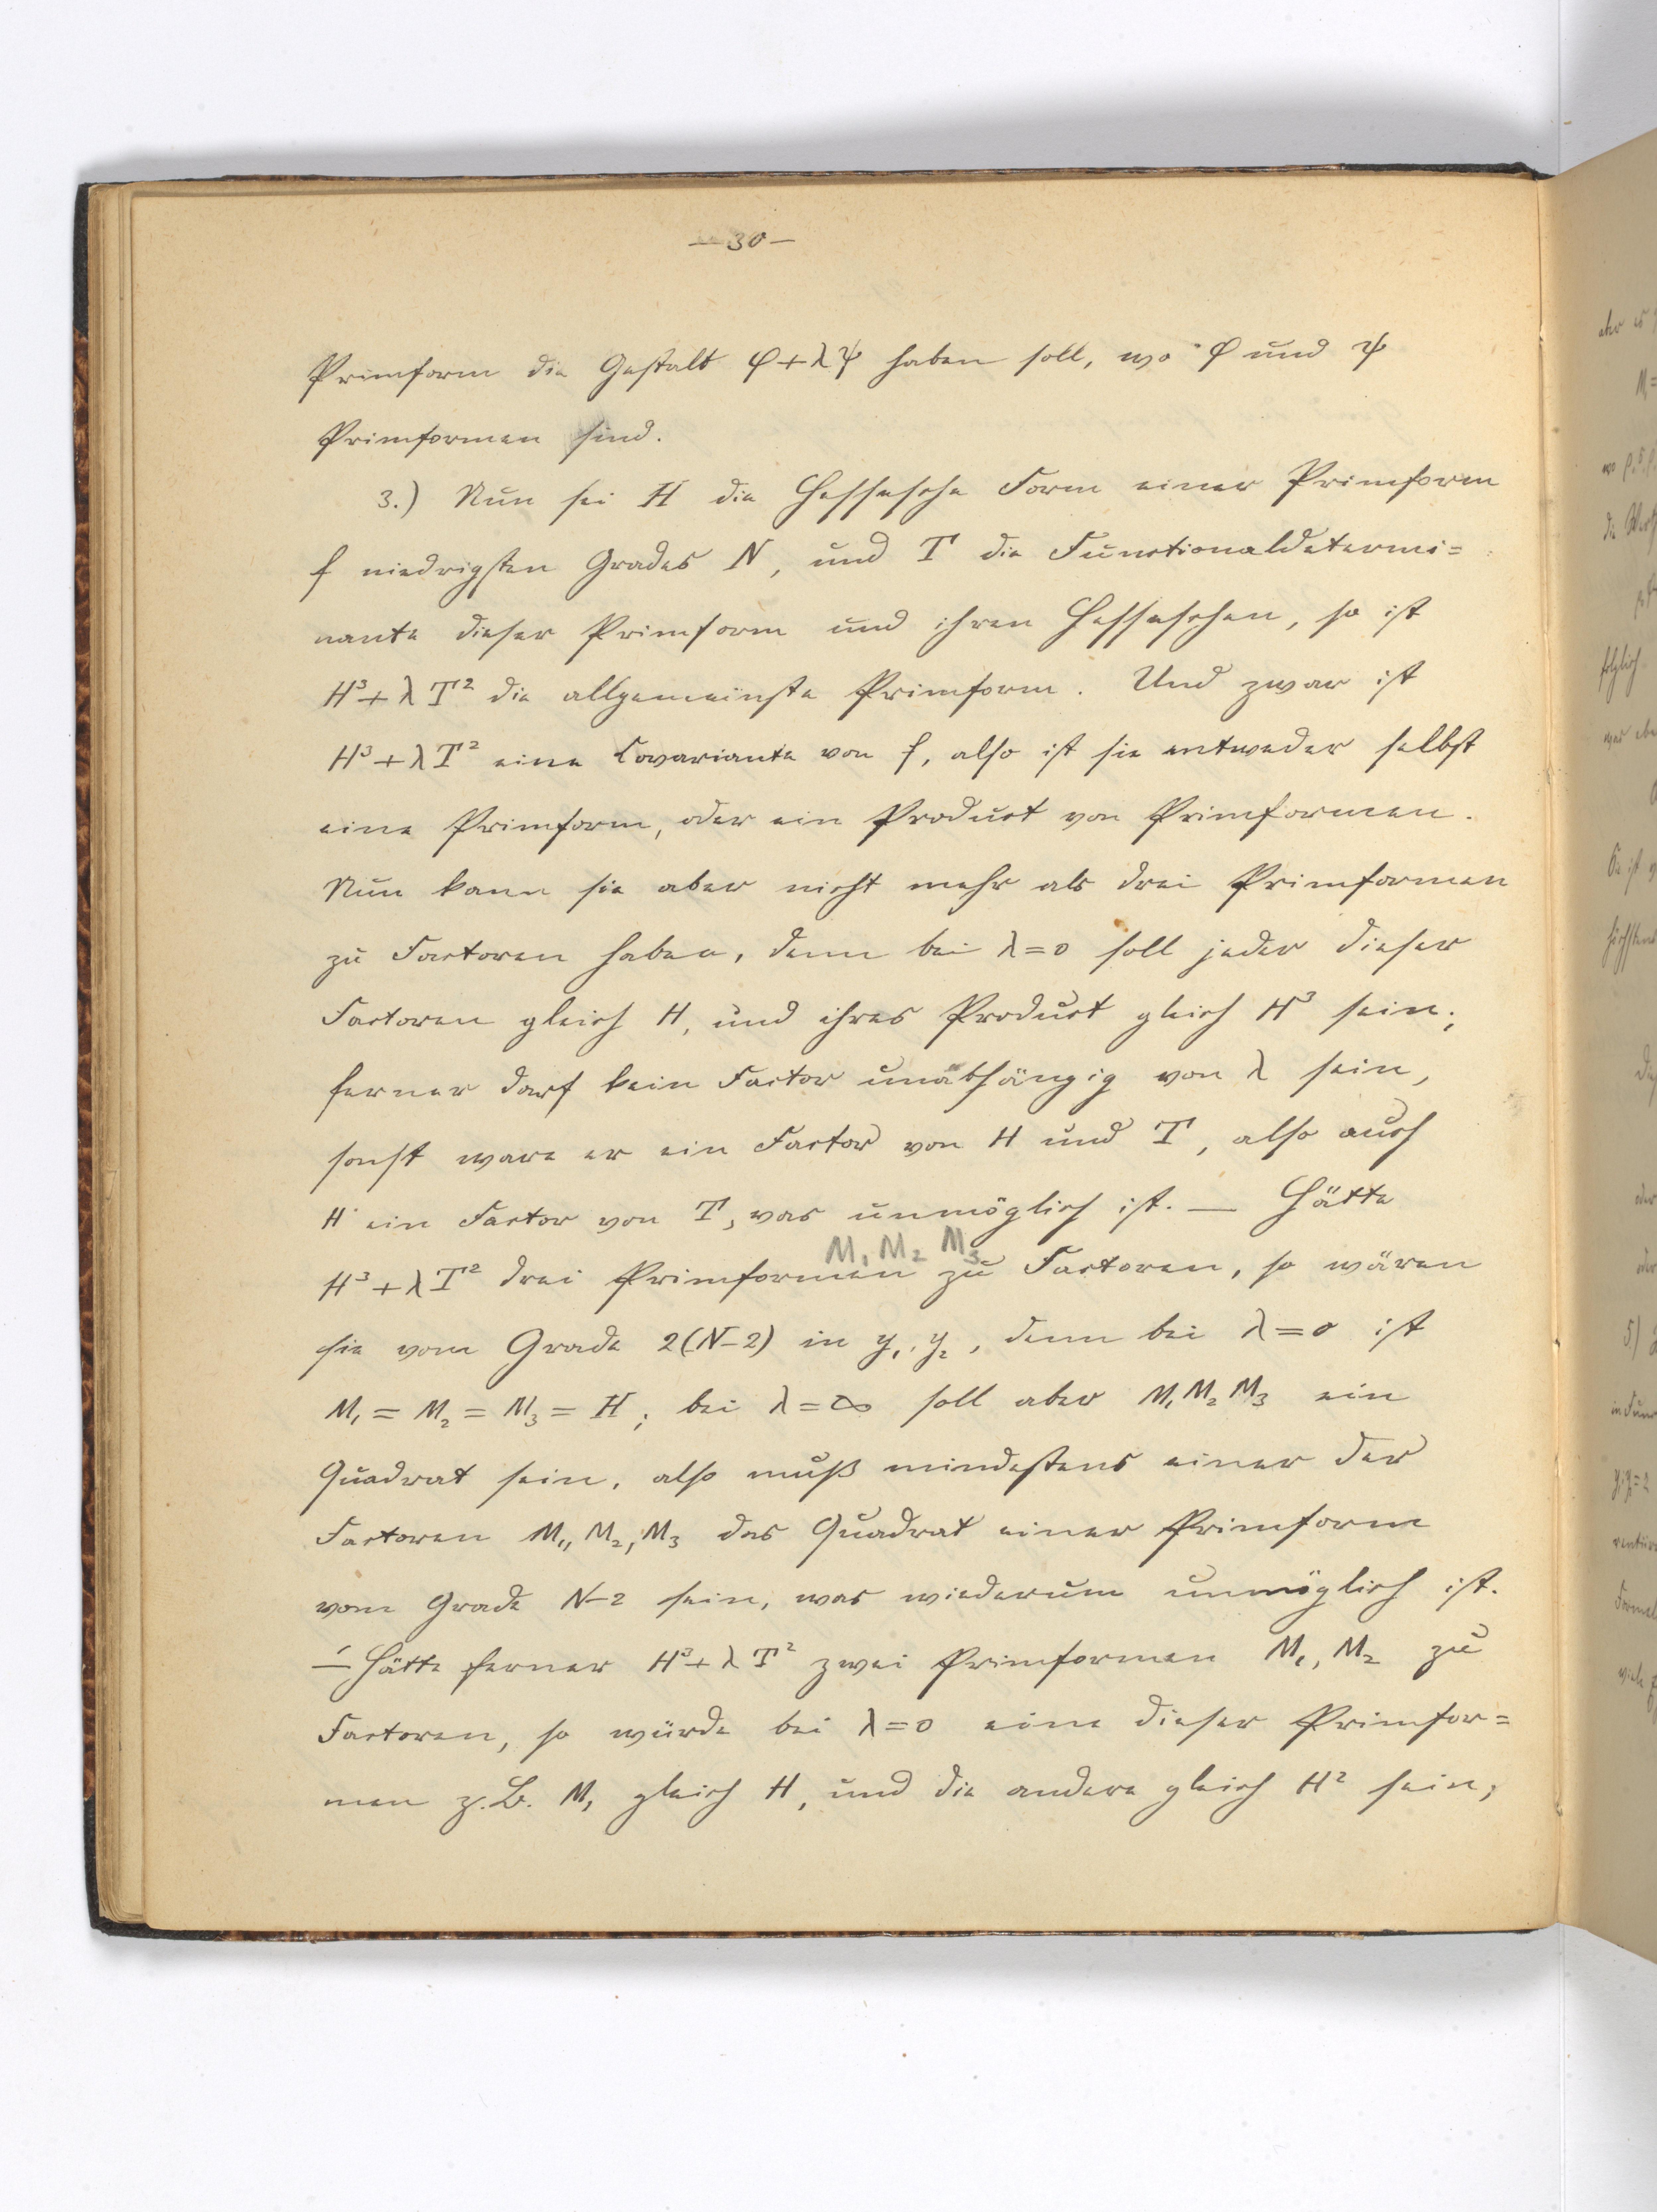 — 30 —
Primform die Gestalt φ+λψ haben soll, wo φ und ψ
Primformen sind.
3.) Nun sei H die Hessesche Form einer Primform
f niedrigsten Grades N, und T die Functionaldetermi=
nante dieser Primform und ihren Hesseschen, so ist
H³+λT² die allgemeinste Primform. Und zwar ist
H³+λT² eine Covariante von f, also ist sie entweder selbst
eine Primform, oder ein Product von Primformen.
Nun kann sie aber nicht mehr als drei Primformen
zu Factoren haben, denn bei λ=0 soll jeder dieser
Factoren gleich H, und ihres Product gleich H³ sein;
ferner darf kein Factor unabhängig von λ sein,
sonst ware er ein Factor von H und T, also auch
H ein Factor von T, was unmöglich ist. — Hätte
M₁ M₂ M₃
H³+λT² drei Primformen zu Factoren, so wären
sie vom Grade 2(N-2) in y₁, y₂, denn bei λ=0 ist
M₁ = M₂ = M₃ = H; bei λ=∞ soll aber M₁M₂M₃ ein
Quadrat sein, also muß mindestens einer der
Factoren M₁, M₂, M₃ das Quadrat einer Primform
vom Grade N-2 sein, was wiederum unmöglich ist.
— Hätte ferner H³+λT² zwei Primformen M₁, M₂ zu
Factoren, so würde bei λ=0 eine dieser Primfor=
men z.B. M₁ gleich H, und die andere gleich H² sein;